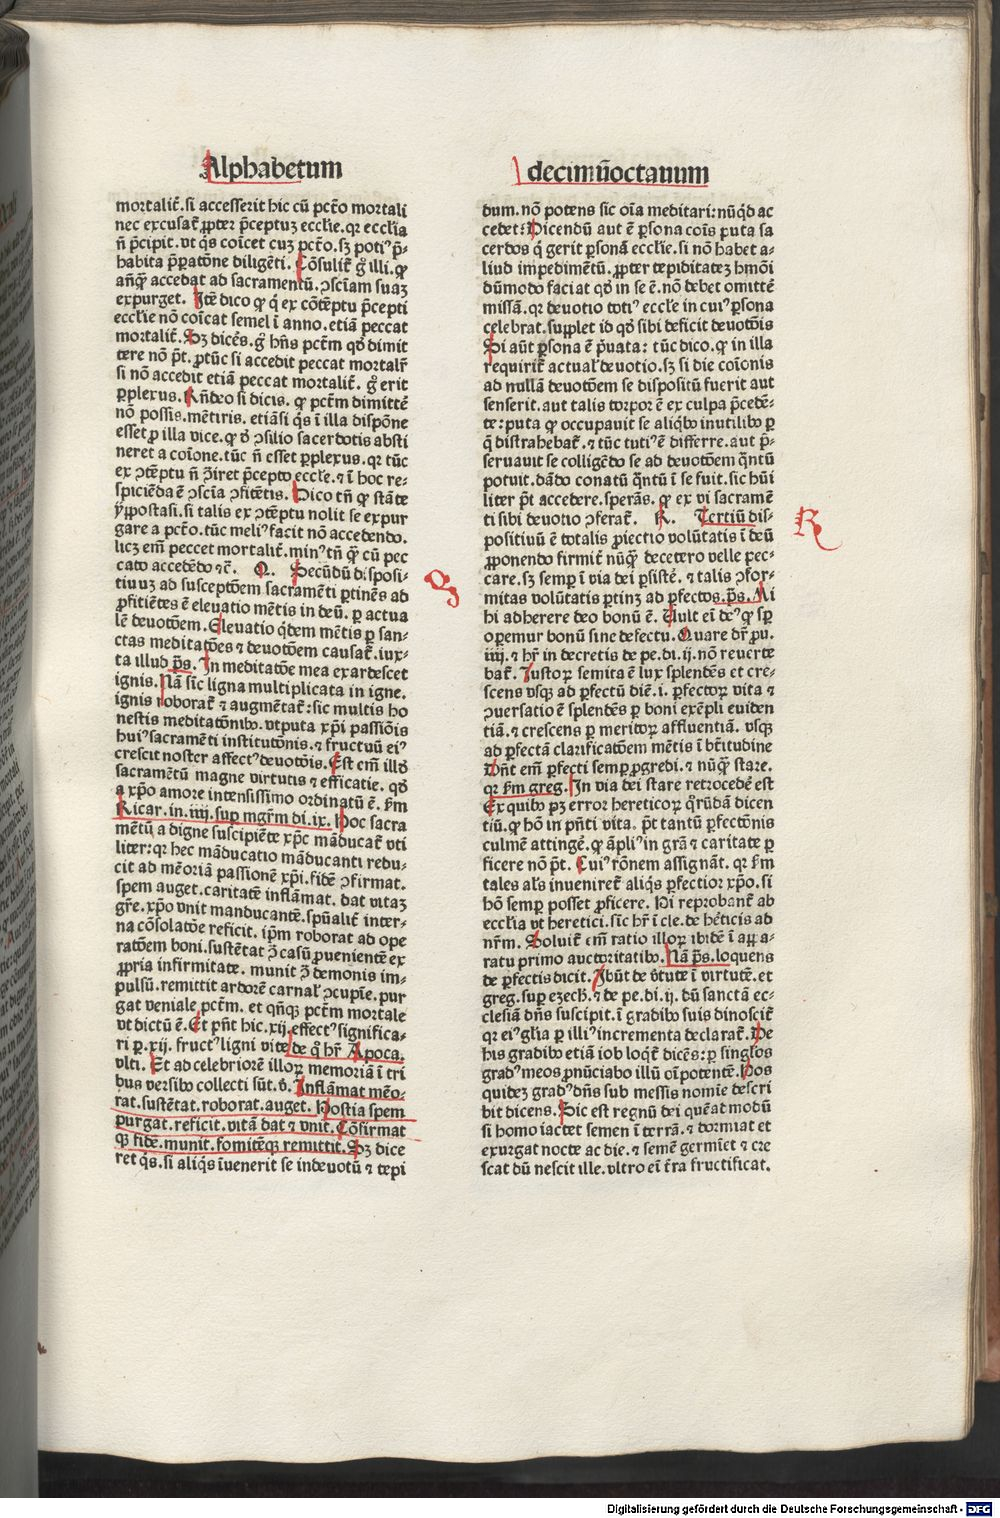 Alphabetum
mortalit̃. si accesserit hic cũ pctõ mortali
nec excusat̃ ꝓpter p̄ceptuꝫ eccl̃ie. qr eccl̃ia
ñ p̄cipit. vt q̃s cõicet cuꝫ pctõ. sꝫ potiꝰ p̄-
habita p̄paratõne diligẽti. Cõsulit̃ g̃ illi. ꝙ
añq̃ꝫ accedat ad sacramentũ. ꝯsciam suaꝫ
expurget. Itẽ dico ꝙ q̃ ex cõtẽptu p̄cepti
eccl̃ie nõ cõicat semel ĩ anno. etiã peccat
mortalit̃. Sꝫ dicẽs. g̃ hñs pctm̃ qd̃ dimit
tere nõ pt̃. ꝓtũc si accedit peccat mortalr̃
si nõ accedit etiã peccat mortalit̃. g̃ erit
ꝑplexus. Rñdeo si dicis. ꝙ pctm̃ dimittẽ
nõ possis. mẽtiris. etiãsi q̃s ĩ illa dispõne
esset ꝓ illa vice. ꝙ d̃ ꝯsilio sacerdotis absti
neret a cõione. tũc ñ esset ꝑplexus. qr tũc
ex ꝯtẽptu ñ ꝯ̃iret p̄cepto eccl̃e. ⁊ ĩ hoc re-
spiciẽda ẽ ꝯscĩa ꝯfitẽtis. Dico tñ ꝙ stãte
ypostasi. si talis ex ꝯtẽptu nolit se expur
gare a pctõ. tũc meliꝰ facit nõ accedendo.
licꝫ em̃ peccet mortalit̃. minꝰ tñ q̃ꝫ cũ pec
cato accedẽdo ⁊c̃. Q. Secũdũ disposi-
tiuuꝫ ad susceptõem sacramẽti ꝑtinẽs ad
ꝓfitiẽtes ẽ eleuatio mẽtis in deũ. ꝑ actua
lẽ deuotõem. Eleuatio q̃dem mẽtis ꝑ san-
ctas meditatões ⁊ deuotõem causat̃. iux-
ta illud p̃s. In meditatõe mea exardescet
ignis. Nã sic ligna multiplicata in igne.
ignis roborat̃ ⁊ augmẽtat̃: sic multis ho
nestis meditatõnibꝰ. vtputa xp̃i passiõis
huiꝰ sacramẽti institutõnis. ⁊ fructuũ eiꝰ
crescit noster affectꝰ deuotõis. Est em̃ illd̃
sacramẽtũ magne virtutis ⁊ efficatie. qd̃
a xp̃o amore intensissimo ordinatũ ẽ. k̃m
Ricar. in. iiij. sup mgr̃m di. ix. Hoc sacra
mẽtũ a digne suscipiẽte xp̃c mãducat̃ vti
liter: qr hec mãducatio mãducanti redu-
cit ad mẽoriã passionẽ xp̃i. fidẽ ꝯfirmat.
spem auget. caritatẽ inflãmat. dat vitaꝫ
gr̃e. xp̃o vnit manducantẽ. spũalit̃ inter-
na cõsolatõe reficit. ip̃m roborat ad ope
ratõem boni. sustẽtat ꝯ̃ casũ puenientẽ ex
ꝓpria infirmitate. munit ꝯ̃ demonis im-
pulsũ. remittit ardorẽ carnal̃ ꝯcupĩe. pur
gat veniale pctm̃. et qñqꝫ pctm̃ mortale
vt dictũ ẽ. Et pñt hic. xij. effectꝰ significa-
ri ꝑ. xij. fructꝰ ligni vite de q̃ hr̃ Apoca.
vlti. Et ad celebriorẽ illoꝝ memoriã ĩ tri
bus versibꝰ collecti sũt. v̄. Inflãmat mẽo-
rat. sustẽtat. roborat. auget. Hostia spem
purgat. reficit. vitã dat ⁊ vnit. Cõfirmat
qꝫ fidẽ. munit. fomitẽqꝫ remittit. Sꝫ dice
ret q̃s. si aliq̃s ĩuenerit se indeuotũ ⁊ tepi
Q
decimũoctauum
dum. nõ potens sic oĩa meditari: nũqd̃ ac
cedet: Dicendũ aut ẽ ꝑsona cõis puta sa
cerdos q̃ gerit ꝑsonã eccl̃ie. si nõ habet a-
liud impedimẽtũ. ꝓpter tepiditateꝫ hmõi
dũmodo faciat qd̃ in se ẽ. nõ debet omittẽ
missã. qr deuotio totiꝰ eccl̃e in cuiꝰ ꝑsona
celebrat. supplet id qd̃ sibi deficit deuotõis
Si aũt ꝑsona ẽ p̄uata: tũc dico. ꝙ in illa
requirit̃ actual̃ deuotio. sꝫ si die cõionis
ad nullã deuotõem se dispositũ fuerit aut
senserit. aut talis torpor ẽ ex culpa p̄cedẽ-
te: puta ꝙ occupauit se aliqbꝰ inutilibꝰ ꝑ
q̃ distrahebat̃. ⁊ tũc tutiꝰ ẽ differre. aut p̄-
seruauit se colligẽdo se ad deuotõem q̃ntũ
potuit. dãdo conatũ q̃ntũ ĩ se fuit. sic hũi
liter pt̃ accedere. sperãs. ꝙ ex vi sacramẽ
ti sibi deuotio ꝯferat̃. R. Tertiũ dis-
positiuũ ẽ totalis ꝓiectio volũtatis ĩ deũ
ꝓponendo firmit̃ nũq̃ꝫ decetero velle pec-
care. sꝫ semꝑ ĩ via dei ꝑsistẽ. ⁊ talis ꝯfor-
mitas volũtatis ꝑtinꝫ ad ꝑfectos. p̃s. Mi
hi adherere deo bonũ ẽ. Uult eĩ deꝰ ꝙ sꝑ
oꝑemur bonũ sine defectu. Quare dr̃ ꝓu.
iiij. ⁊ hr̃ in decretis de pe. di. ij. nõ reuerte
bat̃. Iustoꝝ semita ẽ lux splendẽs et cre-
scens vsqꝫ ad ꝑfectũ diẽ. i. ꝑfectoꝝ vita ⁊
ꝯuersatio ẽ splendẽs ꝑ boni exẽpli euiden
tiã. ⁊ crescens ꝑ meritoꝝ affluentiã. vsqꝫ
ad ꝑfectã clarificatõem mẽtis ĩ bt̃itudine
Dñt em̃ ꝑfecti semꝑ ꝓgredi. ⁊ nũq̃ꝫ stare.
qr k̃m greg. In via dei stare retrocedẽ est
Ex quibꝰ pꝫ error hereticoꝝ q̃rũdã dicen
tiũ. ꝙ hõ in pñti vita. pt̃ tantũ ꝑfectõnis
culmẽ attingẽ. ꝙ ãpliꝰ in gr̃a ⁊ caritate ꝑ
ficere nõ pt̃. Cuiꝰ rõnem assignãt. qr k̃m
tales al̃s inueniret̃ aliq̃s ꝑfectior xp̃o. si
hõ semꝑ posset ꝓficere. Hi reprobant̃ ab
eccl̃ia vt heretici. sic hr̃ ĩ cle. de hẽticis ad
nr̃m. Soluit̃ em̃ ratio illoꝝ ibidẽ ĩ appa-
ratu primo auctoritatibꝰ. Nã p̃s. loquens
de ꝑfectis dicit. Ibũt de v̄tute ĩ virtutẽ. et
greg. suꝑ ezech. ⁊ de pe. di. ij. dũ sanctã ec-
clesiã dñs suscipit. ĩ gradibꝰ suis dinoscit̃
qr eiꝰ gl̃ia ꝑ illiꝰ incrementa declarat̃. De
his gradibꝰ etiã iob loqt̃ dicẽs: ꝑ singl̃os
gradꝰ meos pronũciabo illũ oĩpotentẽ. Hos
quideꝫ gradꝰ dñs sub messis nomĩe descri
bit dicens. Sic est regnũ dei quẽat modũ
si homo iactet semen ĩ terrã. ⁊ dormiat et
exurgat nocte ac die. ⁊ semẽ germĩet ⁊ cre
scat dũ nescit ille. vltro eĩ t̃ra fructificat.
R
Digitalisierung gefördert durch die Deutsche Forschungsgemeinschaft - DFG